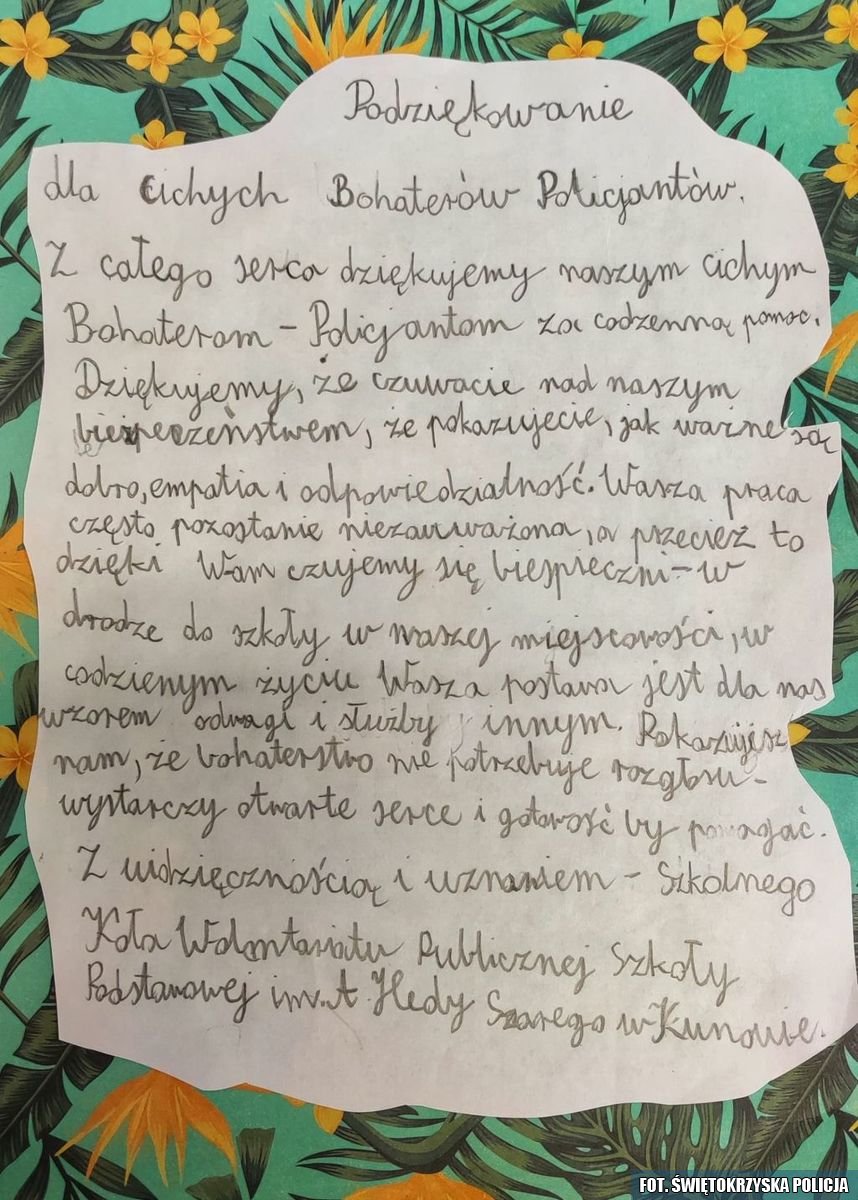 Podziękowanie
dla cichych Bohaterów Policjantów.
Z całego serca dziękujemy naszym cichym
Bohaterom - Policjantom za codzenną pomoc.
Dziękujemy, że czuwacie nad naszym
bezpeczeństwem, że pokazujecie, jak ważne są
dobro, empatia i odpowiedzialność. Wasza praca
często pozostanie niezauważona, a przecież to
dzięki Wam czujemy się biespieczni - w
drodze do szkoły w naszej miejscowości, w
codzienym życiu Wasza postawa jest dla nas
wzorem odwagi i służby innym. Pokazujesz
nam, że bohaterstwo nie potrzebuje rozgłosu -
wystarczy otwarte serce i gotowość by pomagać.
Z widzięcznością i uznaniem - Szkolnego
Koła Wolontariatu Publicznej Szkoły
Podstawowej im. A. Hedy Szarego w Kunowie.
FOT. ŚWIĘTOKRZYSKA POLICJA